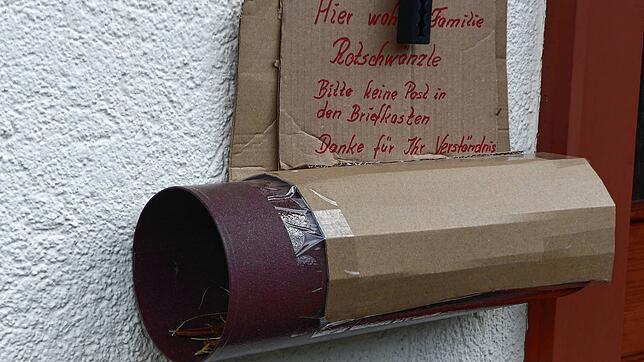 Hier woh Familie
Rotschwänzle
Bitte keine Post in
den Briefkasten
Danke für Ihr Verständnis